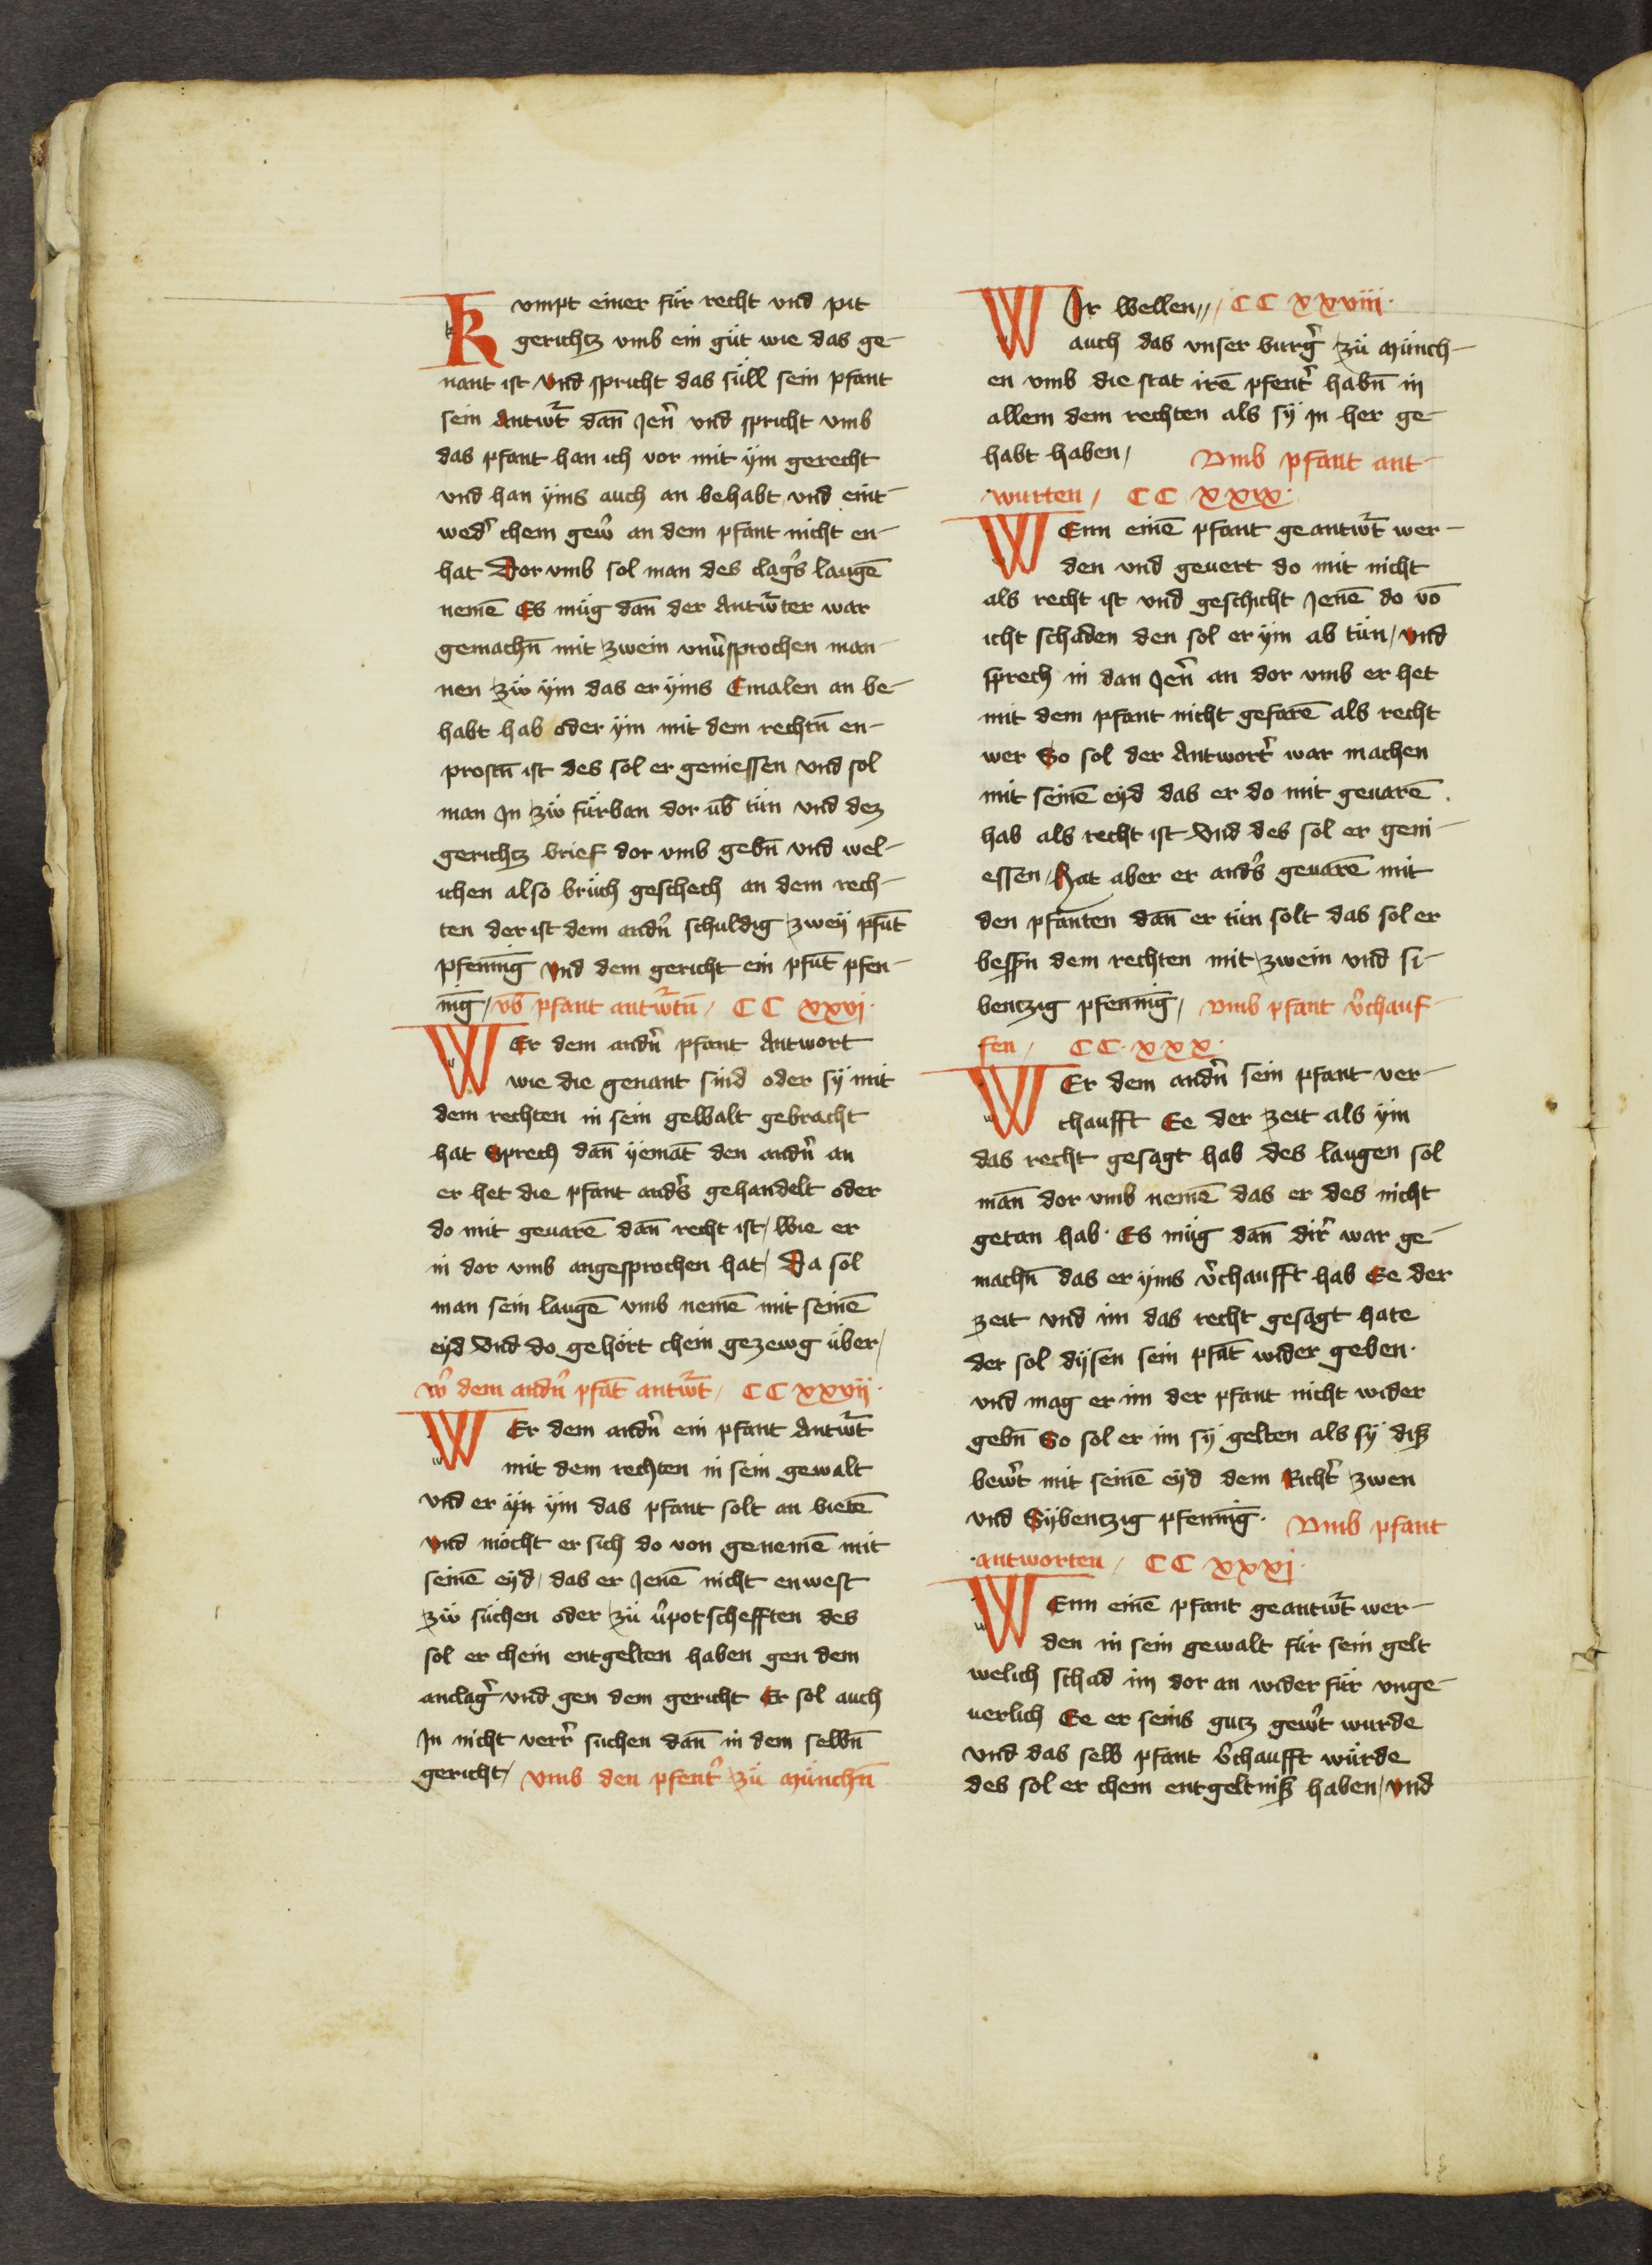 Kumpt einer für recht vnd pit
gerichtz vmb ein güt wie das ge-
nant ist vnd spricht das süll sein pfant
sein Antwr̃t dañ Jen̄ vnd spricht vmb
das pfant han ich vor mit ym gerecht
vnd han yms auch an behabt vnd eint-
wed̾ chem gew̾ an dem pfant nicht en-
hat Dor vmb sol man des clag̾s laugē
nemē Es müg dañ der Antwr̃ter war
gemachn̄ mit zwein vnu̾sprochen man-
nen zẅ ym das er yms Emalen an be-
habt hab oder ym mit dem rechtn̄ en-
prostn̄ ist des sol er geniessen vnd sol
man Jn zẅ fürban dor ūb tün vnd dez
gerichtz brief dor vmb gebn̄ vnd wel-
ichen also brüch geschech an dem rech-
ten der ist dem andn̾ schuldig zwey pfūt
pfennīg vnd dem gericht ein pfūt pfen-
nīg / vb̄ pfant antwr̃tn̄ / CC xxvj·
WEr dem andn̾ pfant Antwort
wie die genant sind oder sy mit
dem rechten in sein gewalt gebracht
hat Sprech dañ yemāt den andn̾ an
er het die pfant and̾s gehandelt oder
do mit geuarē dañ recht ist / Wie er
in dor vmb angesprochen hat / Da sol
man sein laugē vmb nemē mit seinē
eyd Vnd do gehört chein gezewg über /
W̾ dem andn̾ pfāt antwr̃t / CC xxvij·
WEr dem andn̾ ein pfant Antwr̃t
mit dem rechten in sein gewalt
vnd er yn ym das pfant solt an bietē
vnd möcht er sich do von genemē mit
seinē eyd / das er Jenē nicht enwest
zẅ süchen oder zü u̾potschefften des
sol er chein entgelten haben gen dem
anclag̾ vnd gen dem gericht Er sol auch
Jn nicht verr̾ suchen dañ in dem selbn̄
gericht / vmb den pfent̾ zü münchn̄
WIr wellen // CC xxviii·
auch das vnser burg̾ zü münch-
en vmb die stat irē pfent̾ habn̄ in
allem dem rechten als sy in her ge-
habt haben / Vmb pfant ant-
wurten / CC xxix·
WEnn einē pfant geantwr̃t wer-
den vnd geuert do mit nicht
als recht ist vnd geschicht Jenē do vō
icht schaden den sol er ym ab tün / vnd
sprech in dan Jen̄ an dor vmb er het
mit dem pfant nicht gefarē als recht
wer So sol der Antwort̾ war machen
mit seinē eyd das er do mit geuarē
hab als recht ist Vnd des sol er geni-
essen / Hat aber er and̾s geuarē mit
den pfanten dañ er tün solt das sol er
bessn̾ dem rechten mit zwein vnd si-
bentzig pfennīg / Vmb pfant v̾chauf-
fen / CC·xxx·
WEr dem andn̾ sein pfant ver-
chaufft Ee der zeit als ym
das recht gesagt hab des laugen sol
mañ dor vmb nemē das er des nicht
getan hab · Es müg dañ dir̾ war ge-
machn̄ das er yms v̾chaufft hab Ee der
zeit vnd im das recht gesagt hate
der sol dysen sein pfāt wider geben·
vnd mag er im der pfant nicht wider
gebn̄ So sol er im sy gelten als sy diß
bew̾t mit seinē eyd dem Richt̾ zwen
vnd Sybentzig pfennīg · Vmb pfant
antworten / CC xxxj·
WEnn einē pfant geantwr̃t wer-
den in sein gewalt für sein gelt
welich schad im dor an wider für vnge-
uerlich Ee er seins gutz gew̾t wurde
vnd das selb pfant v̾chaufft würde
des sol er chem entgeltniß haben / vnd